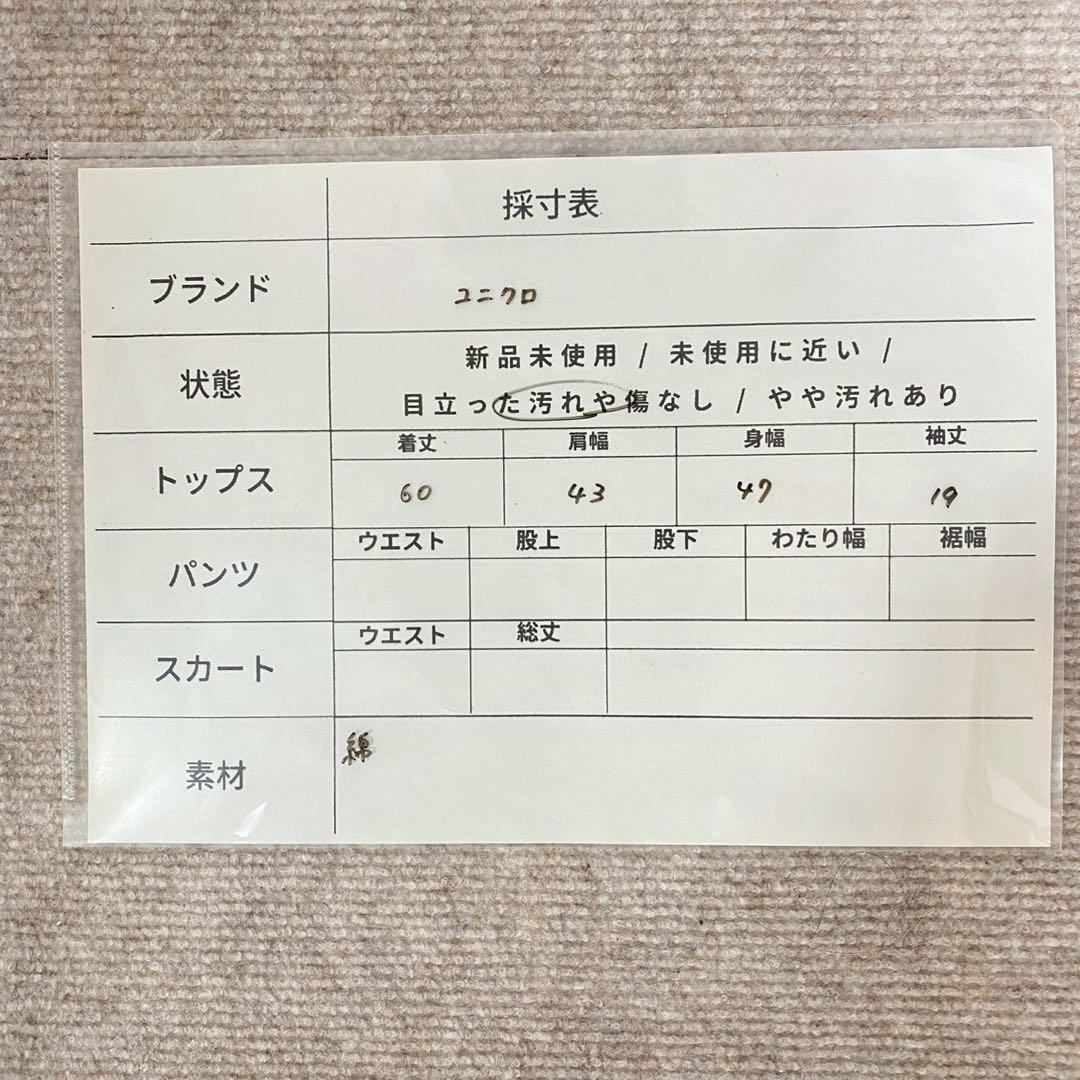 採寸表
ブランド ユニクロ
状態 新品未使用 / 未使用に近い /
目立った汚れや傷なし / やや汚れあり
トップス 着丈 肩幅 身幅 袖丈
60 43 47 19
パンツ ウエスト 股上 股下 わたり幅 裾幅
スカート ウエスト 総丈
素材 綿